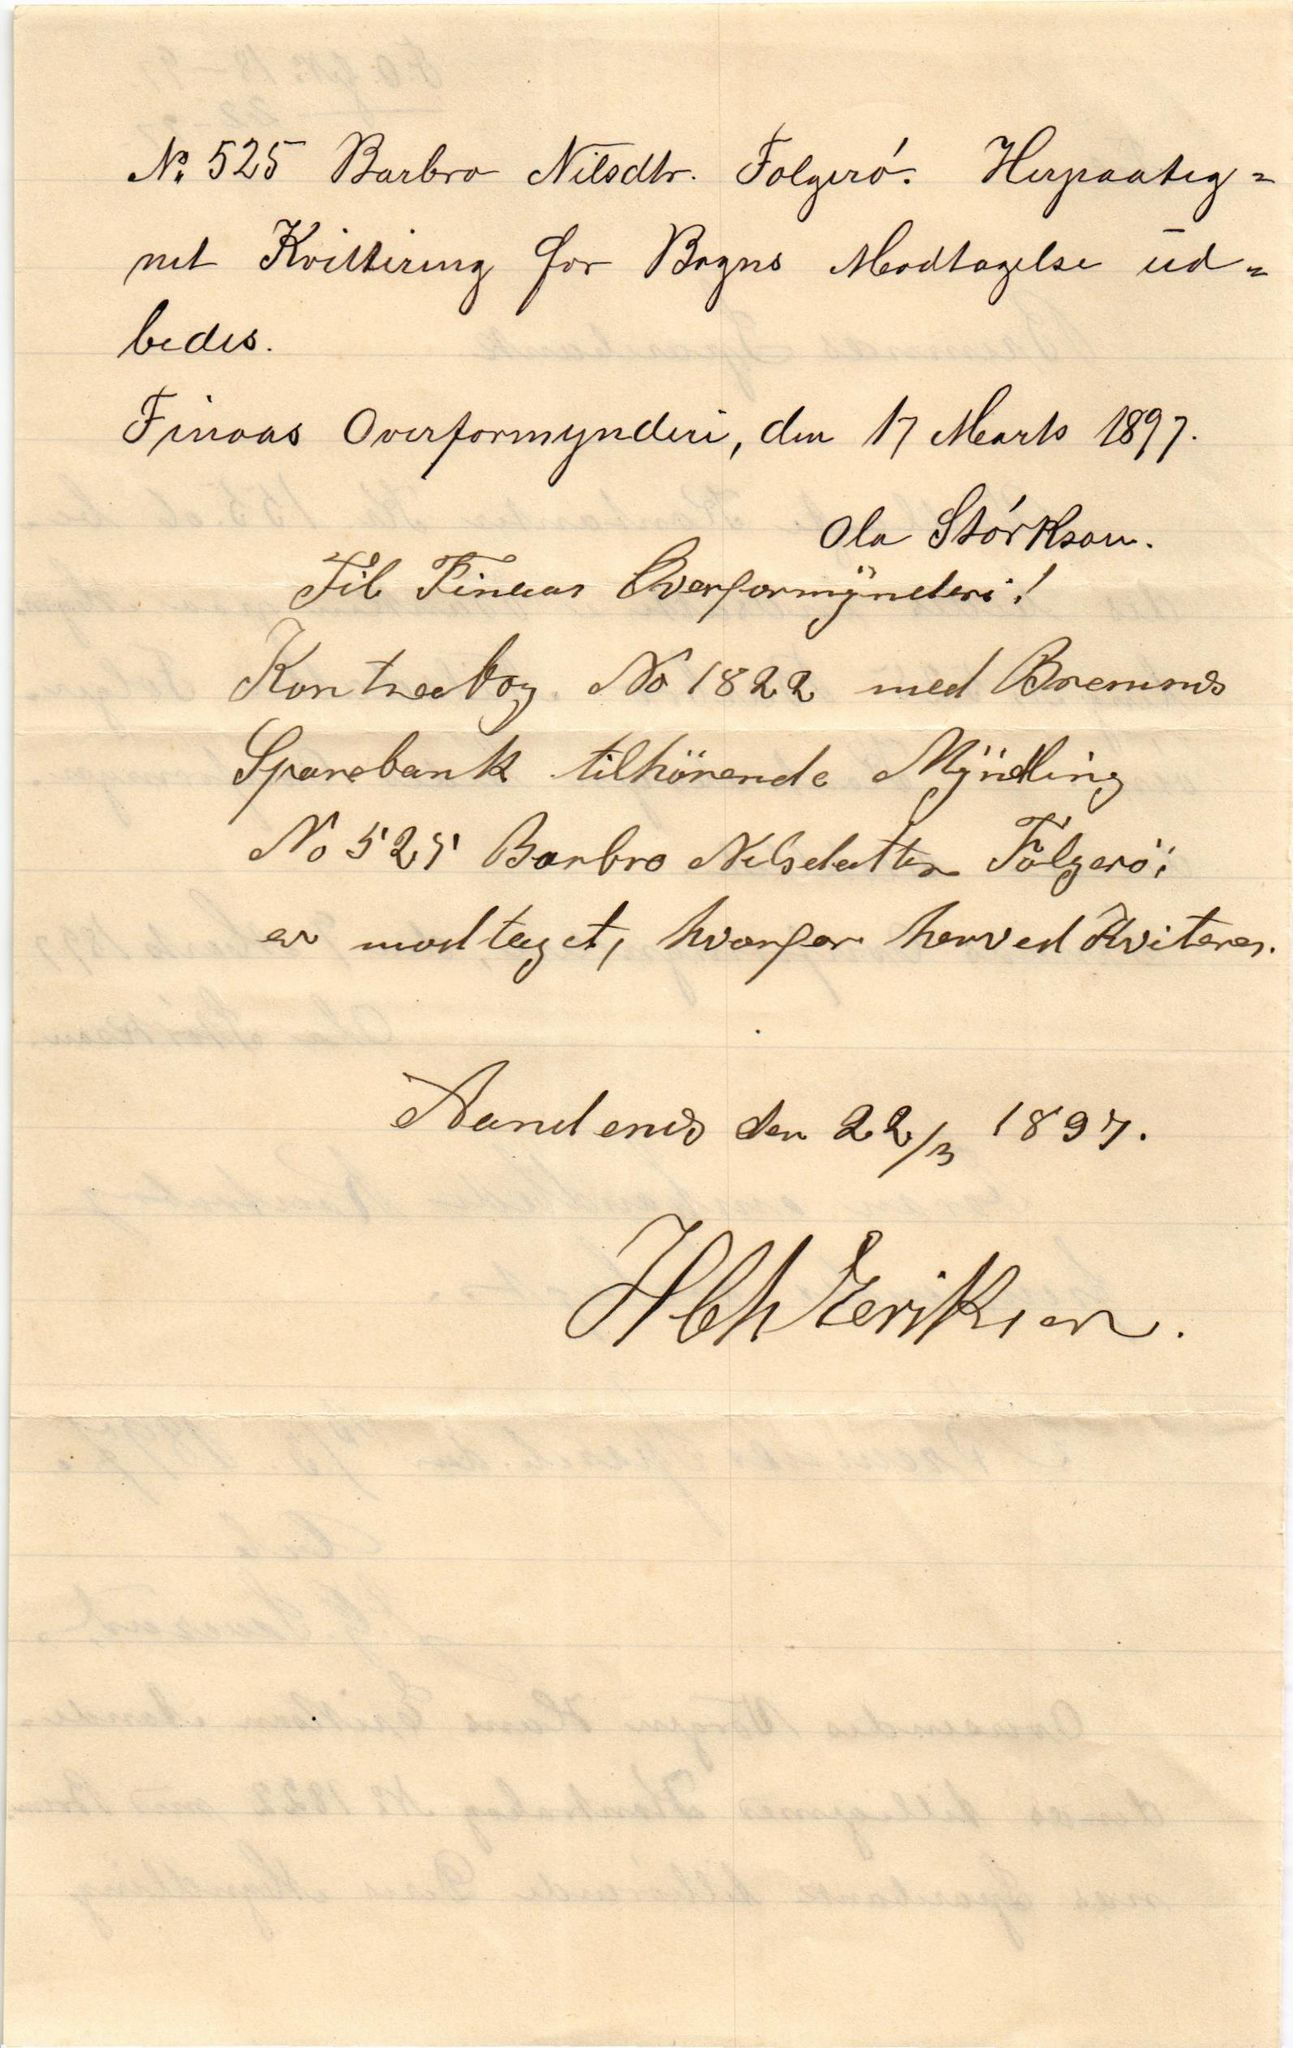 No. 525 Barbro Nilsdtr. Folgerö. Herpaateg=
net Kvittering for Bogens Modtagelse ud=
bedes.
Finaas Overformynderi, den 17 Marts 1897.
Ola Störkson.
Til Finaas Overformynderi!
Kontrabog No 1822 med Bremnes
Sparebank tilhörende Myndling
No 525 Barbro Nilsdatter Folgerö;
er modtaget, hvorfor herved Kviteres.
den 22/3 1897.
H Ch Eriksen.